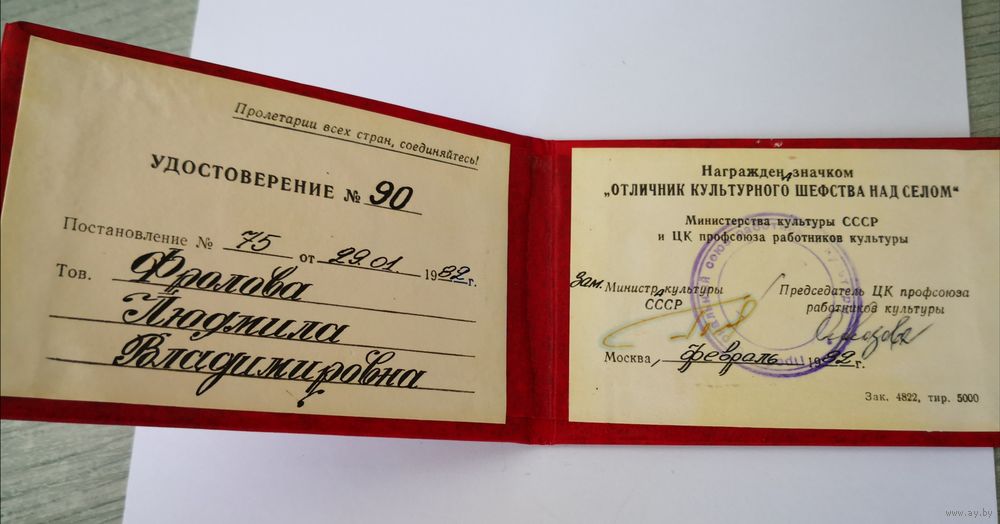 Пролетарии всех стран, соединяйтесь!
УДОСТОВЕРЕНИЕ № 90
Постановление № 75 от 29.01. 1982 г.
Тов. Фролова
Людмила
Владимировна
Награжден а значком
„ОТЛИЧНИК КУЛЬТУРНОГО ШЕФСТВА НАД СЕЛОМ“
Министерства культуры СССР
и ЦК профсоюза работников культуры
Зам. Министр а культуры
СССР
Председатель ЦК профсоюза
работников культуры
Москва, февраль 1982 г.
Зак. 4822, тир. 5000
www.ay.by